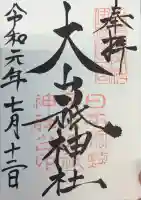 奉拝
大当祇神社
令和元年七月十二日